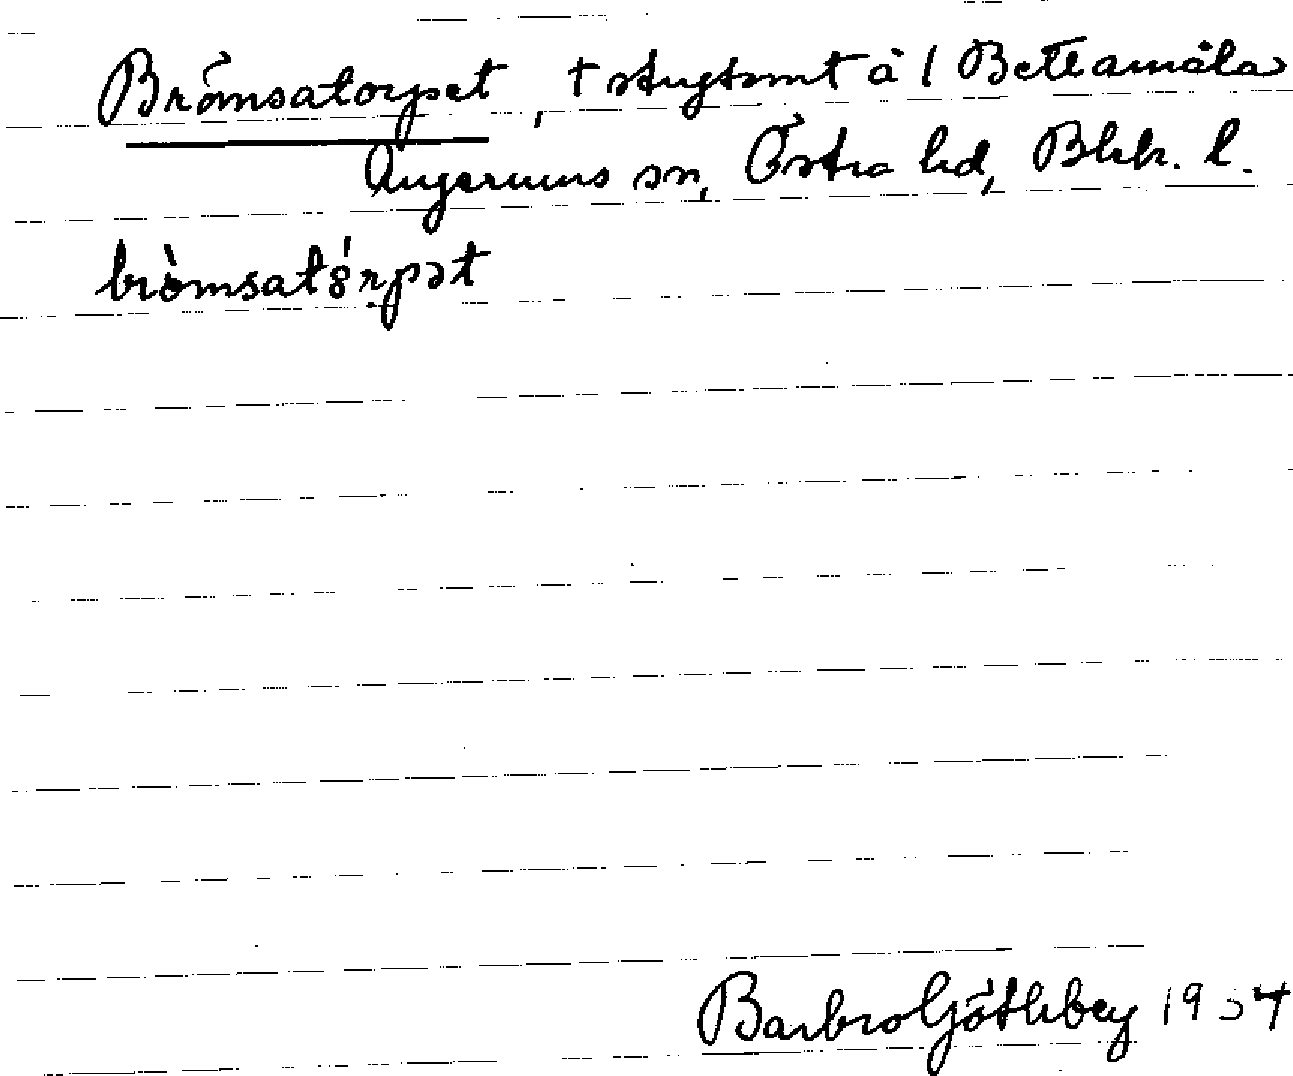 Brömsatorpet, † stugtomt å 1 Betteamåla
Augerums sn, Östra hd, Blek. l.
bròmsatȣ́rpət
Barbro Götlebey 1954